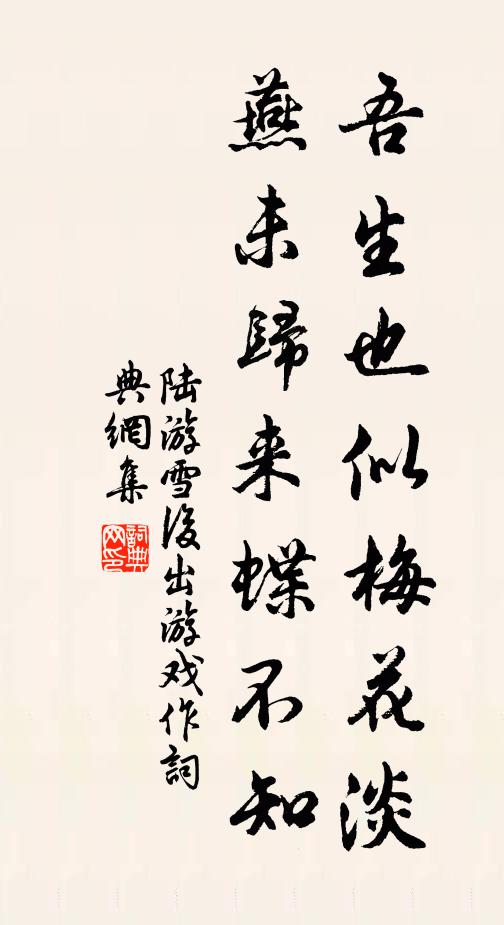 吾生也似梅花淡
燕未歸来蝶不知
陆游雪後出游戏作詞
典網集
詞典
网印